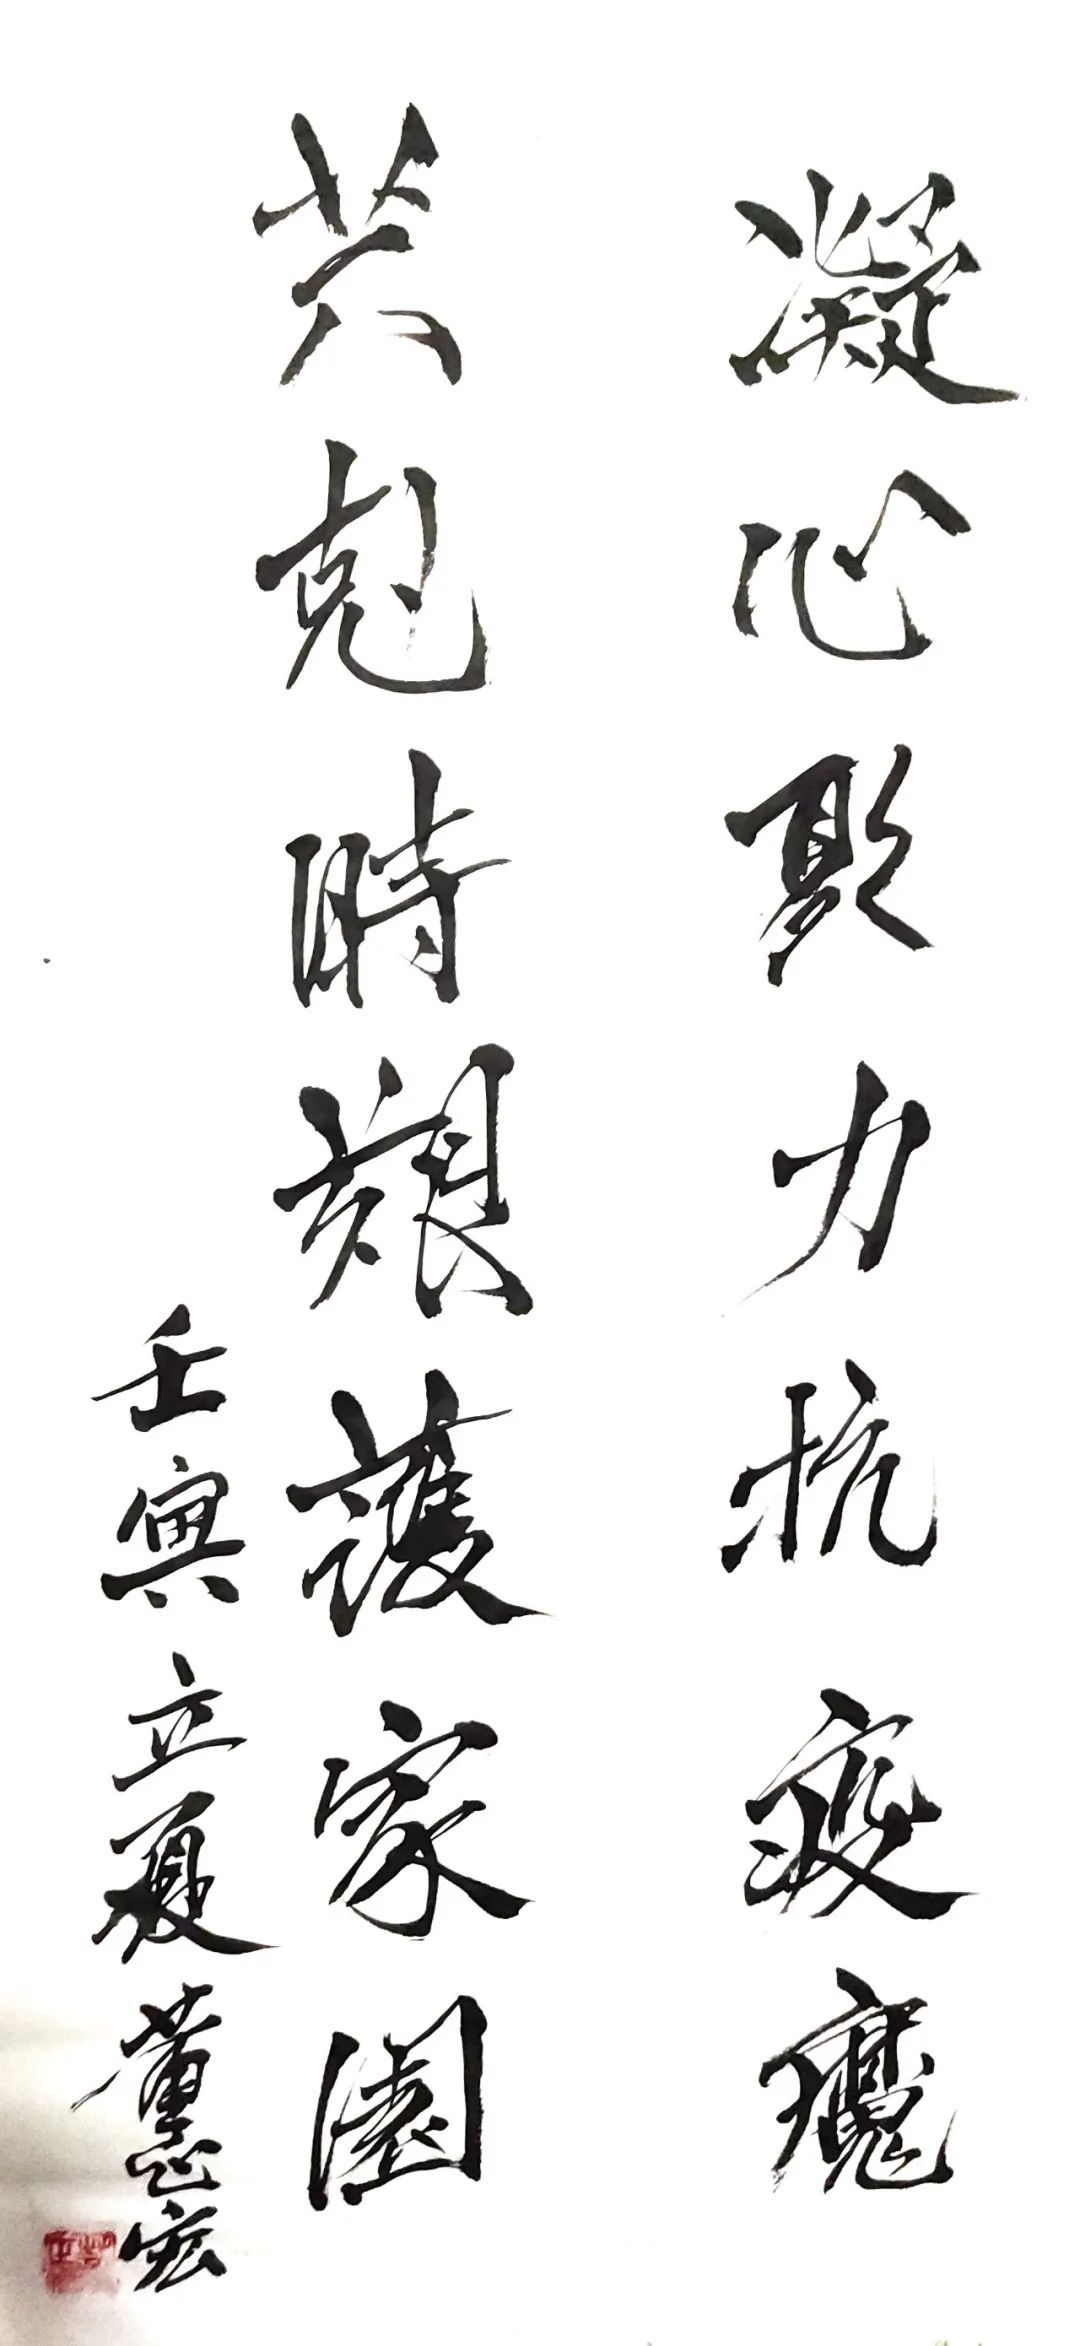 凝心聚力抗疫魔
共剋時艱護家園
壬寅立夏董宏